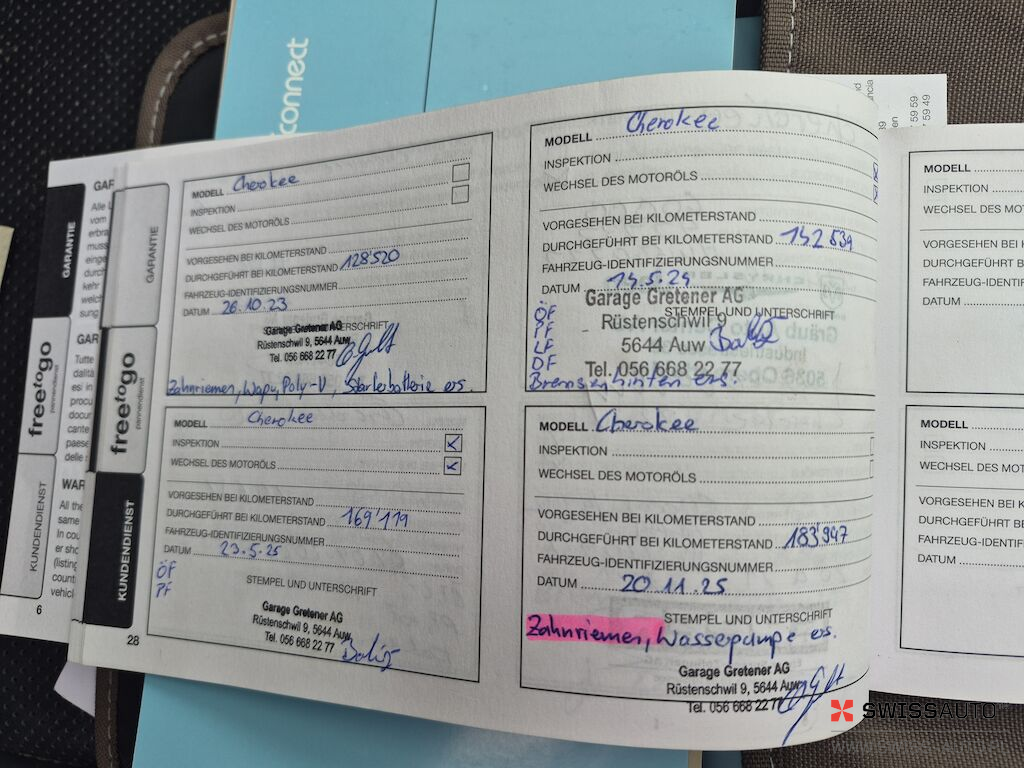 connect
GARANTIE
freetogo
pannendienst
KUNDENDIENST
6
GARANTIE
freetogo
pannendienst
KUNDENDIENST
28
MODELL Cherokee
INSPEKTION
WECHSEL DES MOTORÖLS
VORGESEHEN BEI KILOMETERSTAND
DURCHGEFÜHRT BEI KILOMETERSTAND 128'520
FAHRZEUG-IDENTIFIZIERUNGSNUMMER
DATUM 26.10.23
STEMPEL UND UNTERSCHRIFT
Garage Gretener AG
Rüstenschwil 9, 5644 Auw
Tel. 056 668 22 77
Zahnriemen, Wapu, Poly-V, Starterbatterie ers.
MODELL Cherokee
INSPEKTION
WECHSEL DES MOTORÖLS
VORGESEHEN BEI KILOMETERSTAND
DURCHGEFÜHRT BEI KILOMETERSTAND 142539
FAHRZEUG-IDENTIFIZIERUNGSNUMMER
DATUM 14.5.24
STEMPEL UND UNTERSCHRIFT
Garage Gretener AG
Rüstenschwil 9
5644 Auw
Tel. 056 668 22 77
ÖF
PF
LF
DF
Bremsen hinten ers.
MODELL Cherokee
INSPEKTION
WECHSEL DES MOTORÖLS
VORGESEHEN BEI KILOMETERSTAND
DURCHGEFÜHRT BEI KILOMETERSTAND 169'119
FAHRZEUG-IDENTIFIZIERUNGSNUMMER
DATUM 23.5.25
ÖF
PF
STEMPEL UND UNTERSCHRIFT
Garage Gretener AG
Rüstenschwil 9, 5644 Auw
Tel. 056 668 22 77
MODELL Cherokee
INSPEKTION
WECHSEL DES MOTORÖLS
VORGESEHEN BEI KILOMETERSTAND
DURCHGEFÜHRT BEI KILOMETERSTAND 183'947
FAHRZEUG-IDENTIFIZIERUNGSNUMMER
DATUM 20.11.25
STEMPEL UND UNTERSCHRIFT
Zahnriemen, Wasserpumpe ers.
Garage Gretener AG
Rüstenschwil 9, 5644 Auw
Tel. 056 668 22 77
MODELL
INSPEKTION
WECHSEL DES
VORGESEHEN BEI
DURCHGEFÜHRT
FAHRZEUG-IDENT
DATUM
MODELL
INSPEKTION
WECHSEL DES MO
VORGESEHEN BEI K
DURCHGEFÜHRT B
FAHRZEUG-IDENTIF
DATUM
SWISSAUTO